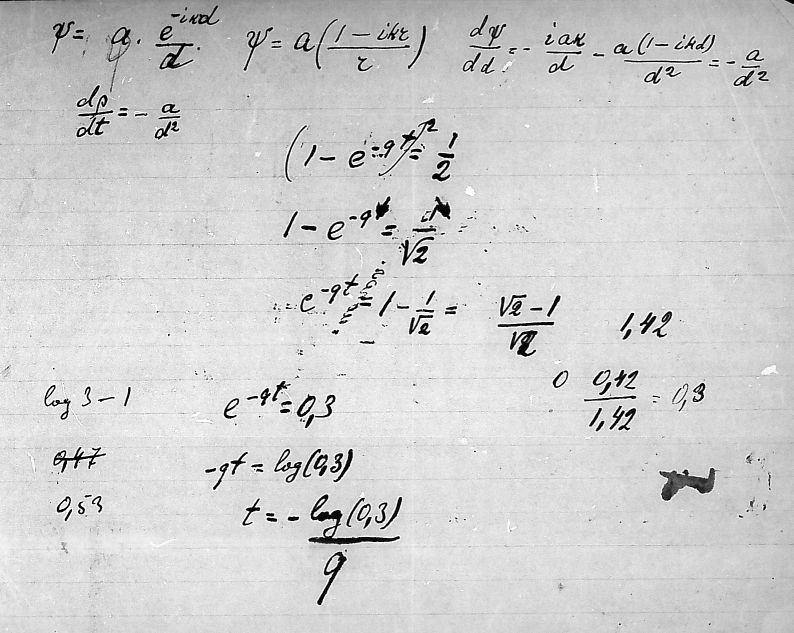 ψ = a · e^{-ikd}/d. ψ = a((1 - ikr)/r) dψ/dd = - iak/d - a(1 - ikd)/d² = - a/d²
dρ/dt = - a/d²
(1 - e^{-qt})² = 1/2
1 - e^{-qt} = 1/√2
e^{-qt} = 1 - 1/√2 = (√2 - 1)/√2 1,42
0 0,42/1,42 = 0,3
log 3 - 1 e^{-qt} = 0,3
0,47 -qt = log(0,3)
0,53 t = - log(0,3)/q